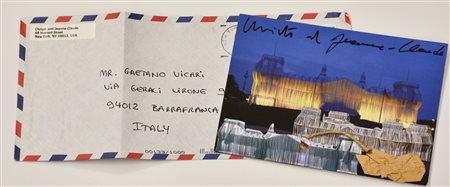 Christo and Jeanne-Claude
48 Howard Street
New York, NY 10013, USA
MR. GAETANO VICARI
VIA GERACI LIRONE 9
94012
BARRAFRANCA
ITALY
00133/1000
Christo et Jeanne-Claude